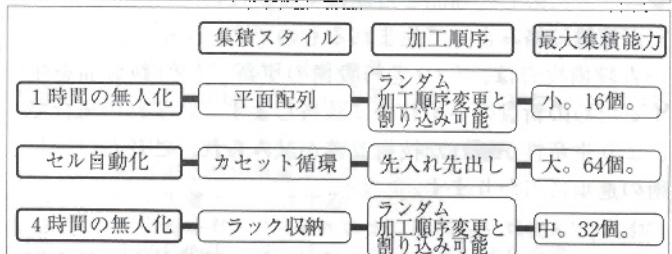 集積スタイル 加工順序 最大集積能力
1時間の無人化 平面配列 ランダム
加工順序変更と
割り込み可能 小。16個。
セル自動化 カセット循環 先入れ先出し 大。64個。
4時間の無人化 ラック収納 ランダム
加工順序変更と
割り込み可能 中。32個。